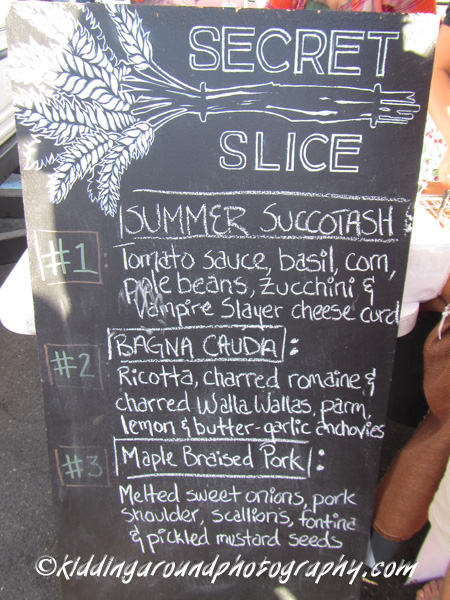 SECRET
SLICE
SUMMER SUCCOTASH :
#1
Tomato sauce, basil, corn,
pole beans, zucchini &
Vampire Slayer cheese curd
BAGNA CAUDA :
#2
Ricotta, charred romaine &
charred Walla Wallas, parm,
lemon & butter-garlic anchovies
#3
Maple Braised Pork :
Melted sweet onions, pork
shoulder, scallions, fontina
& pickled mustard seeds
©kiddingaroundphotography.com